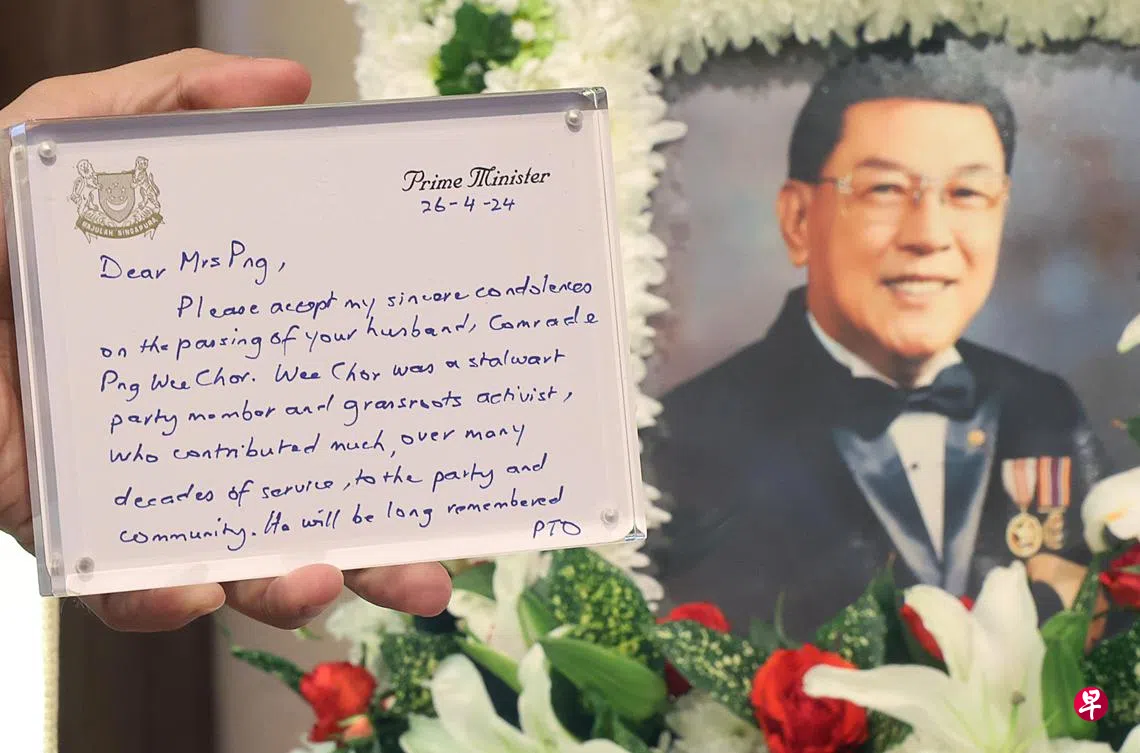 MAJULAH SINGAPURA
Prime Minister
26-4-24
Dear Mrs Png,
Please accept my sincere condolences
on the passing of your husband, Comrade
Png Wee Chor. Wee Chor was a stalwart
party member and grassroots activist,
who contributed much, over many
decades of service, to the party and
community. He will be long remembered
PTO
早